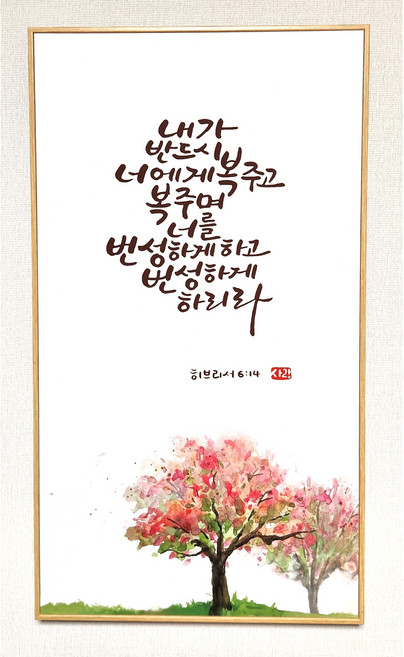 내가
반드시
너에게 복 주고
복 주며
너를
번성하게 하고
번성하게
하리라
히브리서 6:14 사랑